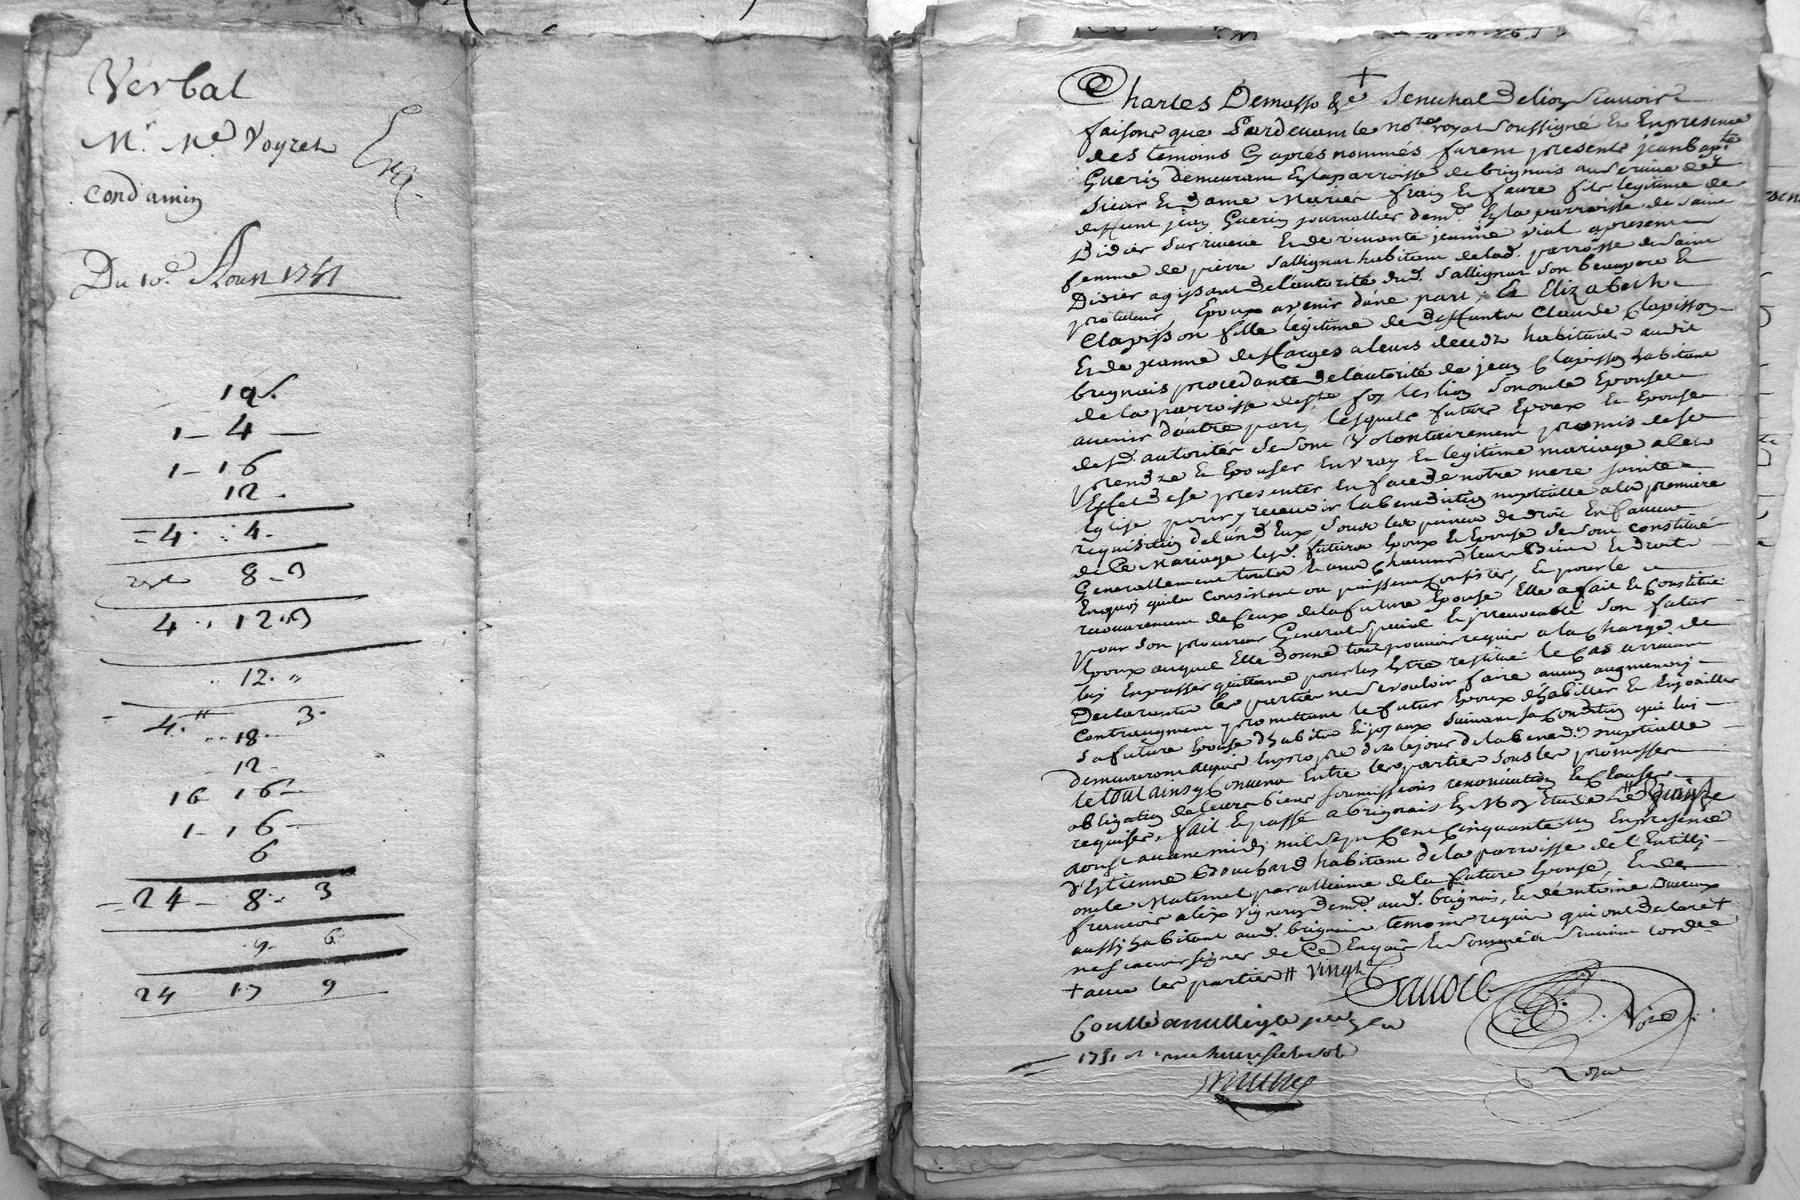 Verbal
Mr. Me Voyret
Condamin
Du 10e Aoust 1741
19
1 - 4 -
1 - 16
12 -
= 4 . : 4 -
8 - 3
4 . . 12 . 3
12 . "
4 . " 3 -
18 -
12 -
16 16 -
1 - 16 -
6
= 24 - 8 . - 3
9 - 6
24 17 9
Charles Demasso &c + Senechal Delion Scavoir
faisons que Pardevant le notre royal soussigné Et En presence
des temoins Cy aprés nommés furent presents jean bapte
Guerin demeurant En la parroisse de brignais au service de
Sieur Et Dame Mariés frain Et faure fils legitime de
deffunt jean Guerin journallier demt En la parroisse de Saint
Didier Sur riverie Et de vivante jeanne vial apresent
femme de pierre Sallignat habitant de lad. parroisse de Saint
Didier agissant De l'autorité dud. Sallignat son beaupere Et
Epoux avenir d'une part, Et Elizabeth
Clapisson fille legitime de Deffunts Claude Clapisson
Et de jeanne desfarges a leurs deceds habitants audit
brignais procedante De l'autorité de jean Clapisson habitant
de la parroisse de Ste foy les lion Son oncle Epouse
avenir d'autre part, lesquels futurs Epoux Et Epouse
desd. autorités se sont Volontairement promis de se
prendre Et Epouser En vray Et legitime mariage a leur
Effet De se presenter En face De notre mere sainte
Eglise pour y recevoir la benediction nuptialle a la premiere
requisition de l'un d'Eux sous les peines de droit En faveur
de Ce Mariage lesd. futurs Epoux Et Epouse se sont constitué
Generallement touts Et uns Chacuns leurs Biens Et Droits
En quoy qu'ils Consistent ou puissent Consister, Et pour le
recouvrement de Ceux de la future Epouse Elle a fait Et Constitué
pour son procureur General Special Et irrevocable son futur
Epoux auquel Elle Donne tout pouvoir requis a la Charge de
les En passer quittance pour les Etre restitué le Cas arrivant
Declarants les parties ne se vouloir faire aucun augment ny
Contreaugment promettant le futur Epoux d'habiller Et Enjoailler
sa future Epouse d'habits Et joyaux suivant sa Condition qui luy
demeureront acquis En propre dez le jour de la bened. nuptialle
le tout ainsy Convenu Entre les parties sous les promesses
obligation de leurs biens soumissions renonciation Et Clauses
requises, fait Et passé a brignais En Mon Etude le
aoust avant midy mil sept Cent Cinquante un En presence
d'Estienne Bouchard habitant de la parroisse de l'Entilly
oncle Maternel par alliance de la future Epouse, Et de
francois alix Vigneron Demt aud. brignais, Et d'antoine
aussy habitant aud. brignais, temoins requis qui ont Declaré +
ne scavoir signer de Ce Enquis Et sommés Suivant l'ordce
+ avec les parties # Vingt
Controllé a
1751